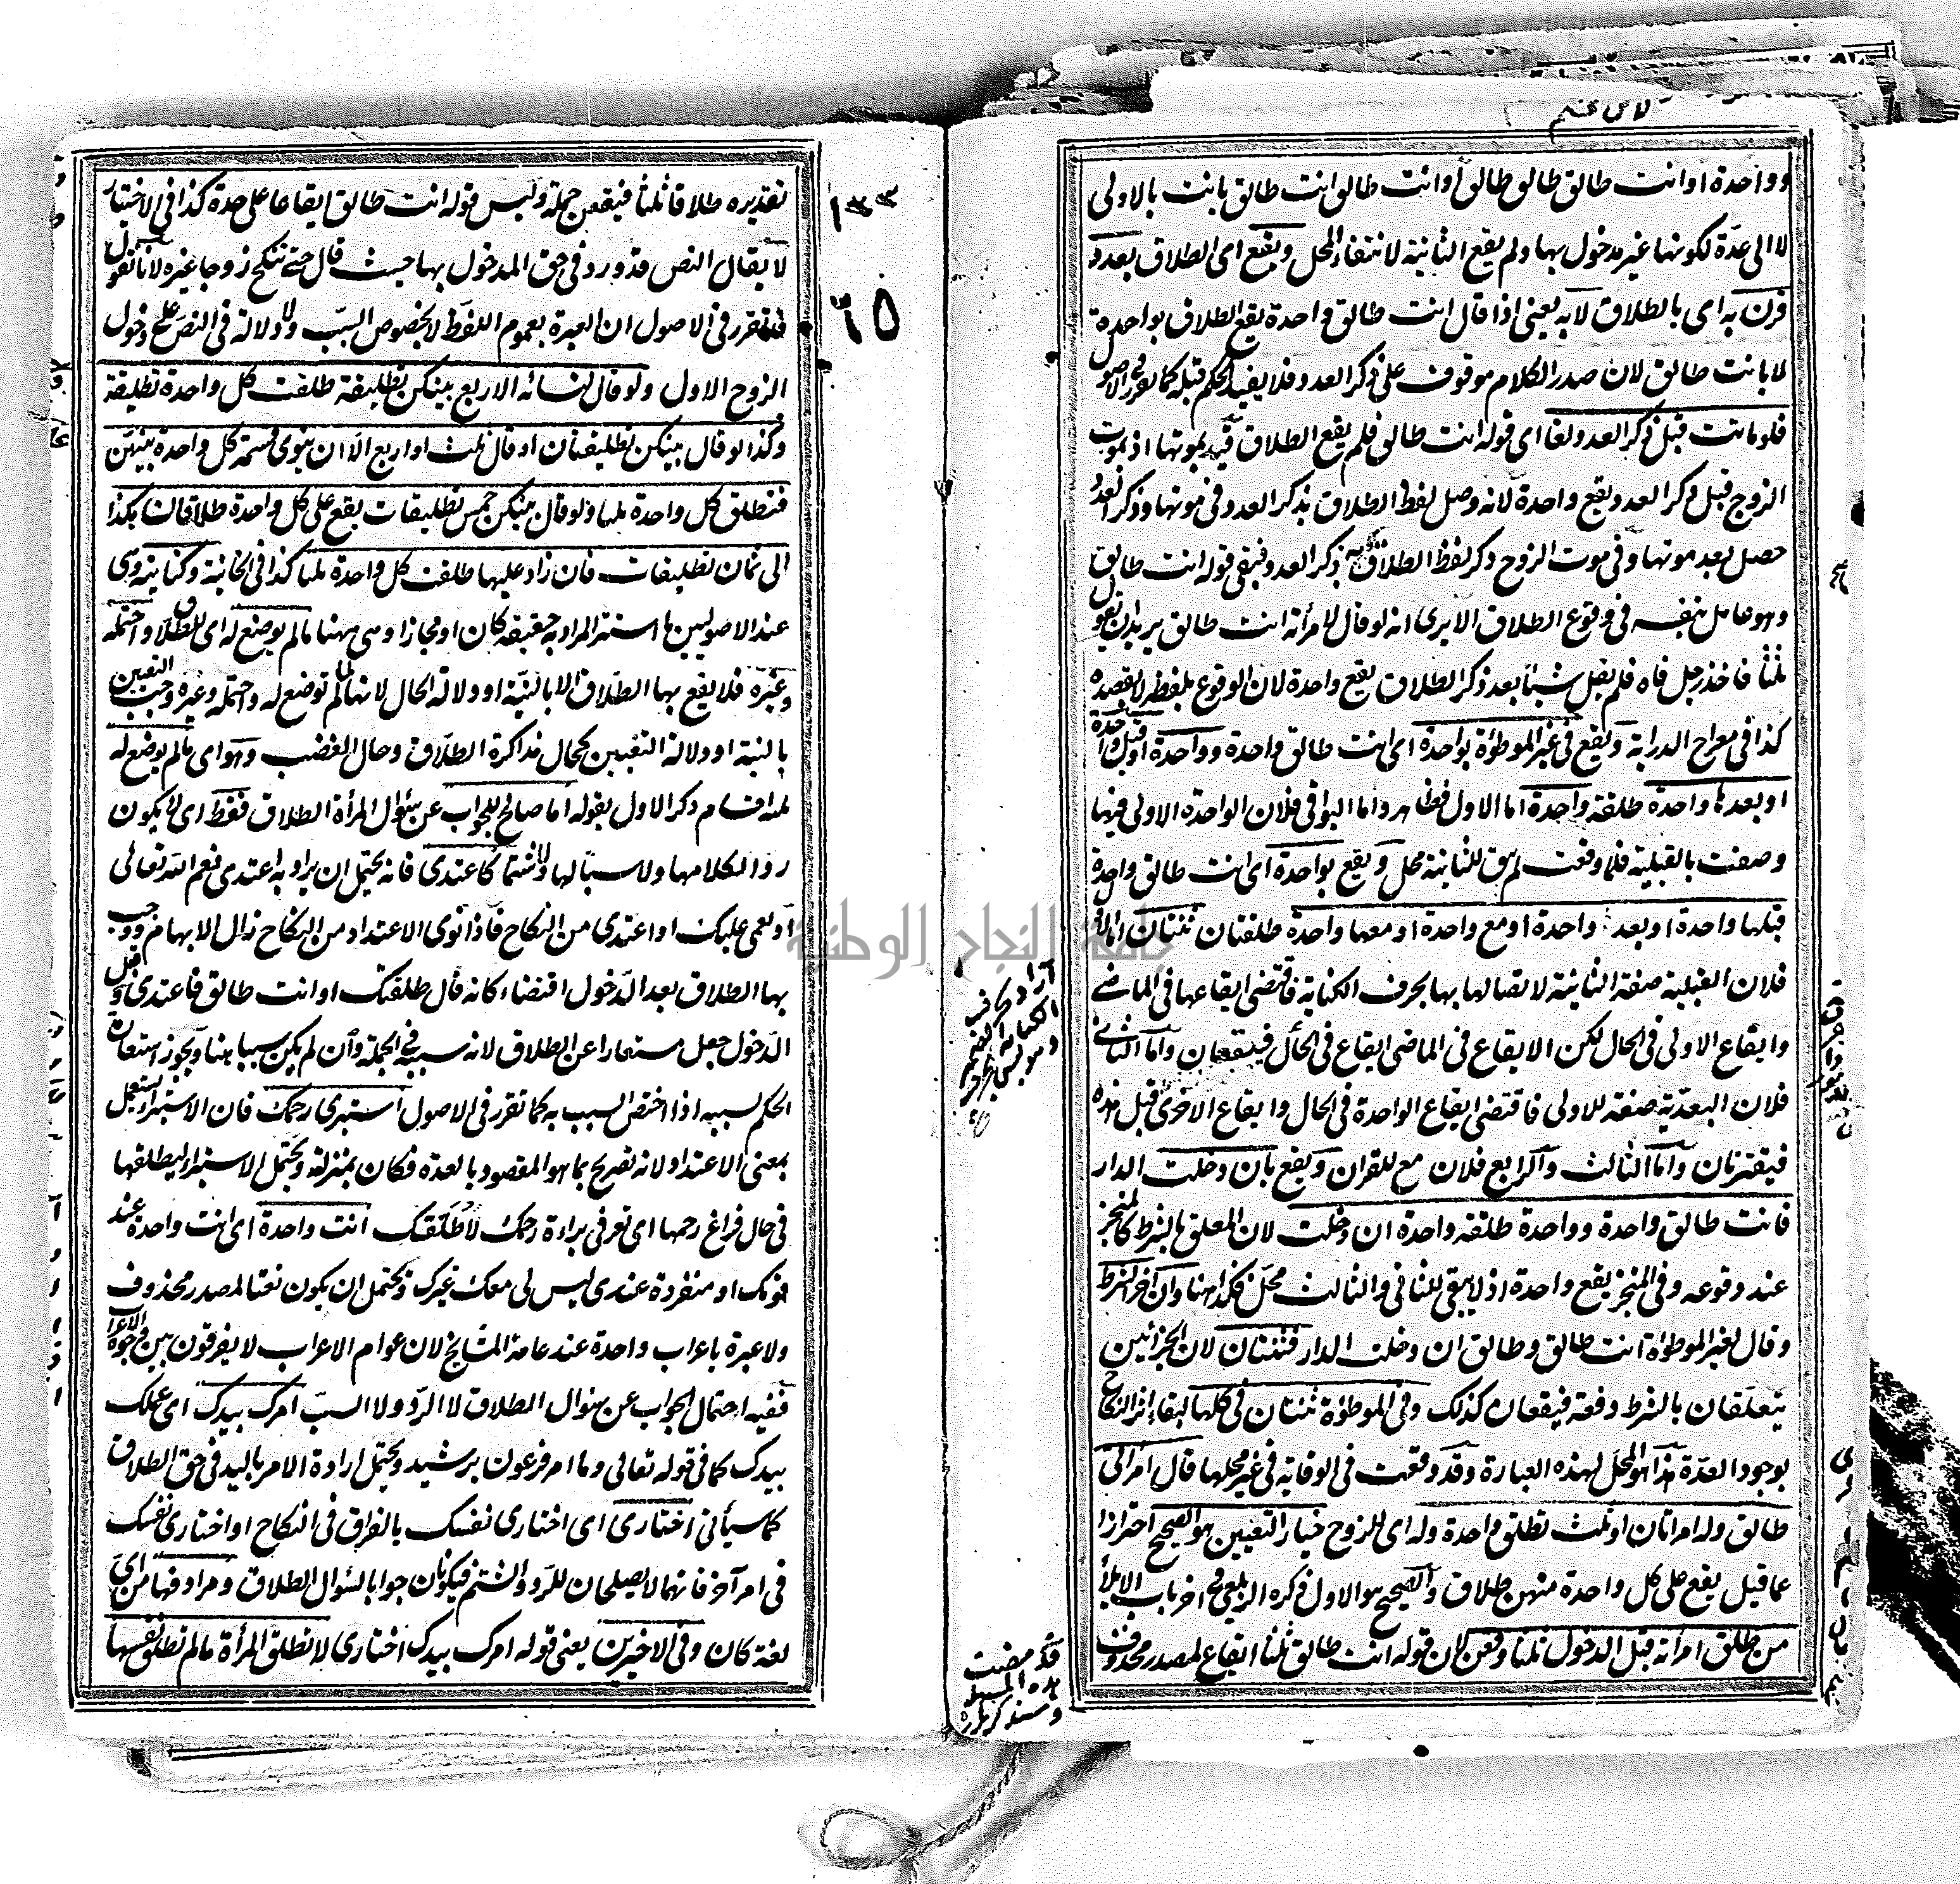 وواحدة او انت طالق طالق طالق او انت طالق انت طالق بانت بالاولى
لا الى عدة لكونها غير مدخول بها ولم يقع الثانية لانتفاء المحل ويقع اى الطلاق بعدد
قرن به اى بالطلاق لا به يعنى اذا قال انت طالق واحدة يقع الطلاق بواحدة
لا بانت طالق لان صدر الكلام موقوف على ذكر العدد فلا يفيد الحكم قبله كما تقرر فى الاصول
فلو ماتت قبل ذكر العدد لغا اى قوله انت طالق فلم يقع الطلاق قيد بموتها اذ بموت
الزوج قبل ذكر العدد يقع واحدة لانه وصل لفظ الطلاق بذكر العدد فى موتها وذكر العدد
حصل بعد موتها وفى موت الزوج ذكر لفظ الطلاق بذكر العدد فبقى قوله انت طالق
وهو عامل بنفسه فى وقوع الطلاق الا يرى انه لو قال لامرأته انت طالق يريد ان يقول
ثلثا فاخذ رجل فاه فلم يقل شيئا بعد ذكر الطلاق يقع واحدة لان الوقوع بلفظه لا بقصده
كذا فى معراج الدراية ويقع فى غير الموطؤة بواحدة اى انت طالق واحدة وواحدة او قبل واحدة
او بعدها واحدة طلقة واحدة اما الاول فظاهر واما البواقى فلان الواحدة الاولى فيها
وصفت بالقبلية فلما وقعت لم يبق للثانية محل ويقع بواحدة اى انت طالق واحدة
قبلها واحدة او بعد واحدة او مع واحدة او معها واحدة طلقتان ثنتان اما الاول
فلان القبلية صفة الثانية لاتصالها بها بحرف الكناية فاقتضى ايقاعها فى الماضى
وايقاع الاولى فى الحال لكن الايقاع فى الماضى ايقاع فى الحال فيقعان واما الثانى
فلان البعدية صفة للاولى فاقتضى ايقاع الواحدة فى الحال وايقاع الاخرى قبل هذه
فيقترنان واما الثالث والرابع فلان مع للقران ويقع بان دخلت الدار
فانت طالق واحدة وواحدة طلقة واحدة ان دخلت لان المعلق بالشرط كالمنجز
عند وقوعه وفى المنجز يقع واحدة اذ لا يبقى للثانى والثالث محل فكذا هنا وان اخر الشرط
وقال لغير الموطؤة انت طالق وطالق ان دخلت الدار فثنتان لان الجزائين
يتعلقان بالشرط دفعة فيقعان كذلك وفى الموطؤة ثنتان فى كلها لبقاء اثر النكاح
بوجود العدة هذا هو المحل لهذه العبارة وقد وقعت فى الوقاية فى غير محلها قال امرأتى
طالق وله امرأتان او ثلث تطلق واحدة وله اى للزوج خيار التعيين هو الصحيح احترازا
عما قيل يقع على كل واحدة منهن طلاق والصحيح هو الاول ذكره الزيلعى فى اخر باب الايلاء
من طلق امرأته قبل الدخول ثلثا وقعن لان قوله انت طالق ثلثا ايقاع لمصدر محذوف
قد مضت
هذه المسئلة
١٣٣
٦٥
تقديره طلاقا ثلثا فيقعن جملة وليس قوله انت طالق ايقاعا على حدة كذا فى الاختيار
لا يقال النص قد ورد فى حق المدخول بها حيث قال حتى تنكح زوجا غيره لانا نقول
قد تقرر فى الاصول ان العبرة بعموم اللفظ لا بخصوص السبب ولا دلالة فى النص على دخول
الزوج الاول ولو قال لنسائه الاربع بينكن تطليقة طلقت كل واحدة تطليقة
وكذا لو قال بينكن تطليقتان او قال ثلث او اربع الا ان ينوى قسمة كل واحدة بينهن
فتطلق كل واحدة ثلثا ولو قال بينكن خمس تطليقات يقع على كل واحدة طلاقان هكذا
الى ثمان تطليقات فان زاد عليها طلقت كل واحدة ثلثا كذا فى الخانية وكنايته وهى
عند الاصوليين ما استتر المراد به حقيقة كان او مجازا وهى ههنا ما لم يوضع له اى للطلاق واحتمله
وغيره فلا يقع بها الطلاق الا بالنية او دلالة الحال لانها لما لم توضع له واحتمله وغيره وجب التعيين
بالنية او دلالة التعيين كحال مذاكرة الطلاق وحال الغضب وهو اى ما لم يوضع له
ثلثة اقسام ذكر الاول بقوله اما صالح للجواب عن سؤال المرأة الطلاق فقط اى لا يكون
ردا لكلامها ولا سبا لها ولا شتما كاعتدى فانه يحتمل ان يراد به اعتدى نعم الله تعالى
او نعمى عليك او اعتدى من النكاح فاذا نوى الاعتداد من النكاح زال الابهام ووجب
بها الطلاق بعد الدخول اقتضاء كانه قال طلقتك او انت طالق فاعتدى وقبل
الدخول جعل مستعارا عن الطلاق لانه سببه فى الجملة وان لم يكن سببا هنا ويجوز استعارة
الحكم لسببه اذا اختص السبب به كما تقرر فى الاصول استبرى رحمك فان الاستبراء يستعمل
بمعنى الاعتداد لانه تصريح بما هو المقصود بالعدة فكان بمنزلته ويحتمل الاستبراء ليطلقها
فى حال فراغ رحمها اى تعرفى براءة رحمك لاطلقك انت واحدة اى انت واحدة عند
قومك او منفردة عندى ليس لى معك غيرك ويحتمل ان يكون نعتا لمصدر محذوف
ولا عبرة باعراب واحدة عند عامة المشايخ لان عوام الاعراب لا يفرقون بين وجوه الاعراب
ففيه احتمال الجواب عن سؤال الطلاق لا الرد ولا السب امرك بيدك اى عملك
بيدك كما فى قوله تعالى وما امر فرعون برشيد ويحتمل ارادة الامر باليد فى حق الطلاق
كما سيأتى اختارى اى اختارى نفسك بالفراق فى النكاح او اختارى نفسك
فى امر آخر فانهما لا يصلحان للرد والشتم فيكونان جوابا لسؤال الطلاق ومرادفها من اى
لغة كان وفى الاخيرين يعنى قوله امرك بيدك اختارى لا تطلق المرأة ما لم تطلق نفسها
جامعة النجاح الوطنية